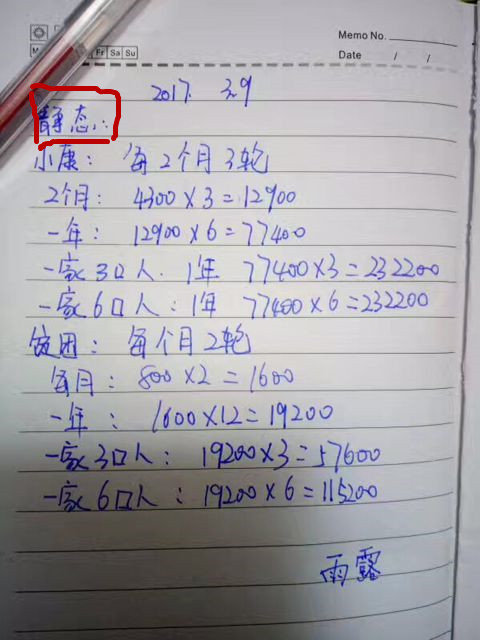 Memo No.
Fr Sa Su
Date / /
2017. 3.9
静态:
小康: 每2个月3轮
2个月: 4300×3=12900
一年: 12900×6=77400
一家3口人. 1年 77400×3=232200
一家6口人: 1年 77400×6=232200
贫困: 每个月2轮
每月: 800×2=1600
一年: 1600×12=19200
一家3口人: 19200×3=57600
一家6口人: 19200×6=115200
雨露